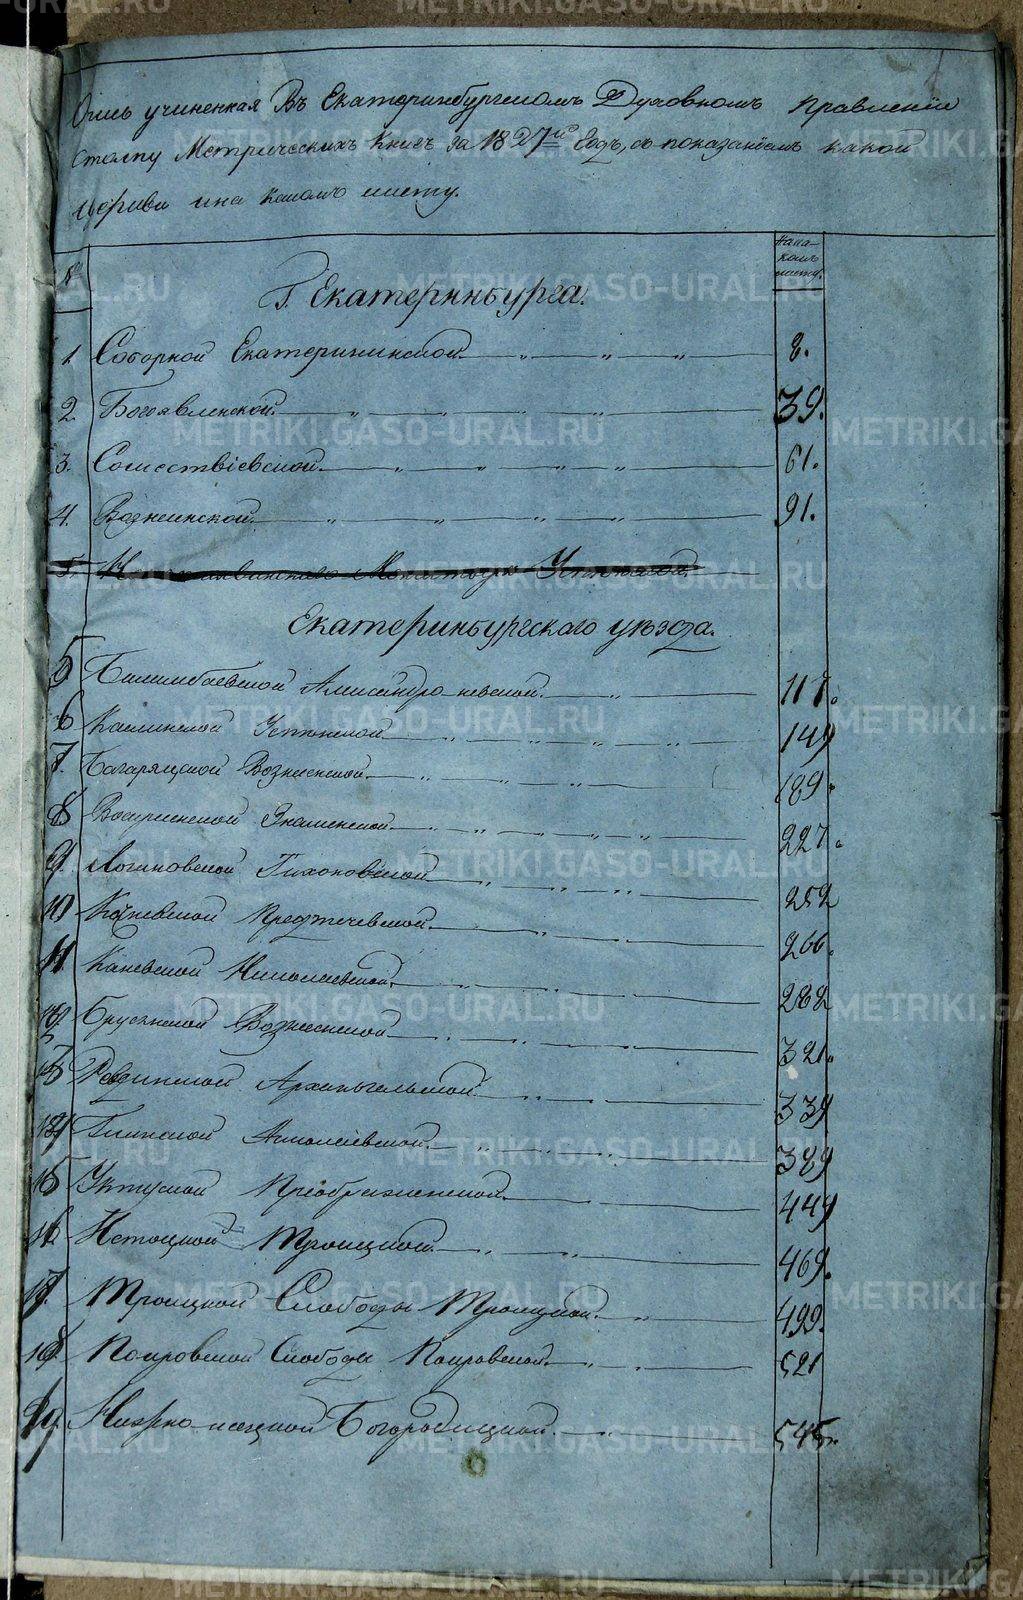 Опись учиненная Въ Екатеринбургскомъ Духовномъ Правленіи
столпу Метрическихъ Книгъ за 1827й Годъ, съ показаніемъ какой
Церкви и на какомъ листу.
№
На ка-
комъ
листу.
Г. Екатеринбурга.
1. Соборной Екатерининской 8.
2. Богоявленской. 39.
3. Сошествіевской. 61.
4. Вознесенской. 91.
5.
Екатеринбургскаго уѣзда.
5 Билимбаевской Александро невской. 117.
6 Каслинской Успенской 149
7. Багаряцкой Вознесенской. 189.
8 Воскресенской Знаменской 227.
9 Логиновской Тихоновской 252
10 Предтечевской. 266.
11. Каневской Николаевской. 282
12 Брусянской Вознесенской 321.
13 Ревдинской Архангельской 339
14 Николаевской 389
15 Уктуской Преображенской. 449
16. Истоцкой Троицкой. 469.
17. Троицкой Слободы Троицкой. 499.
18. Покровской Слободы Покровской. 521
19. Нижно исецкой Богородицкой. 545.
METRIKI.GASO-URAL.RU